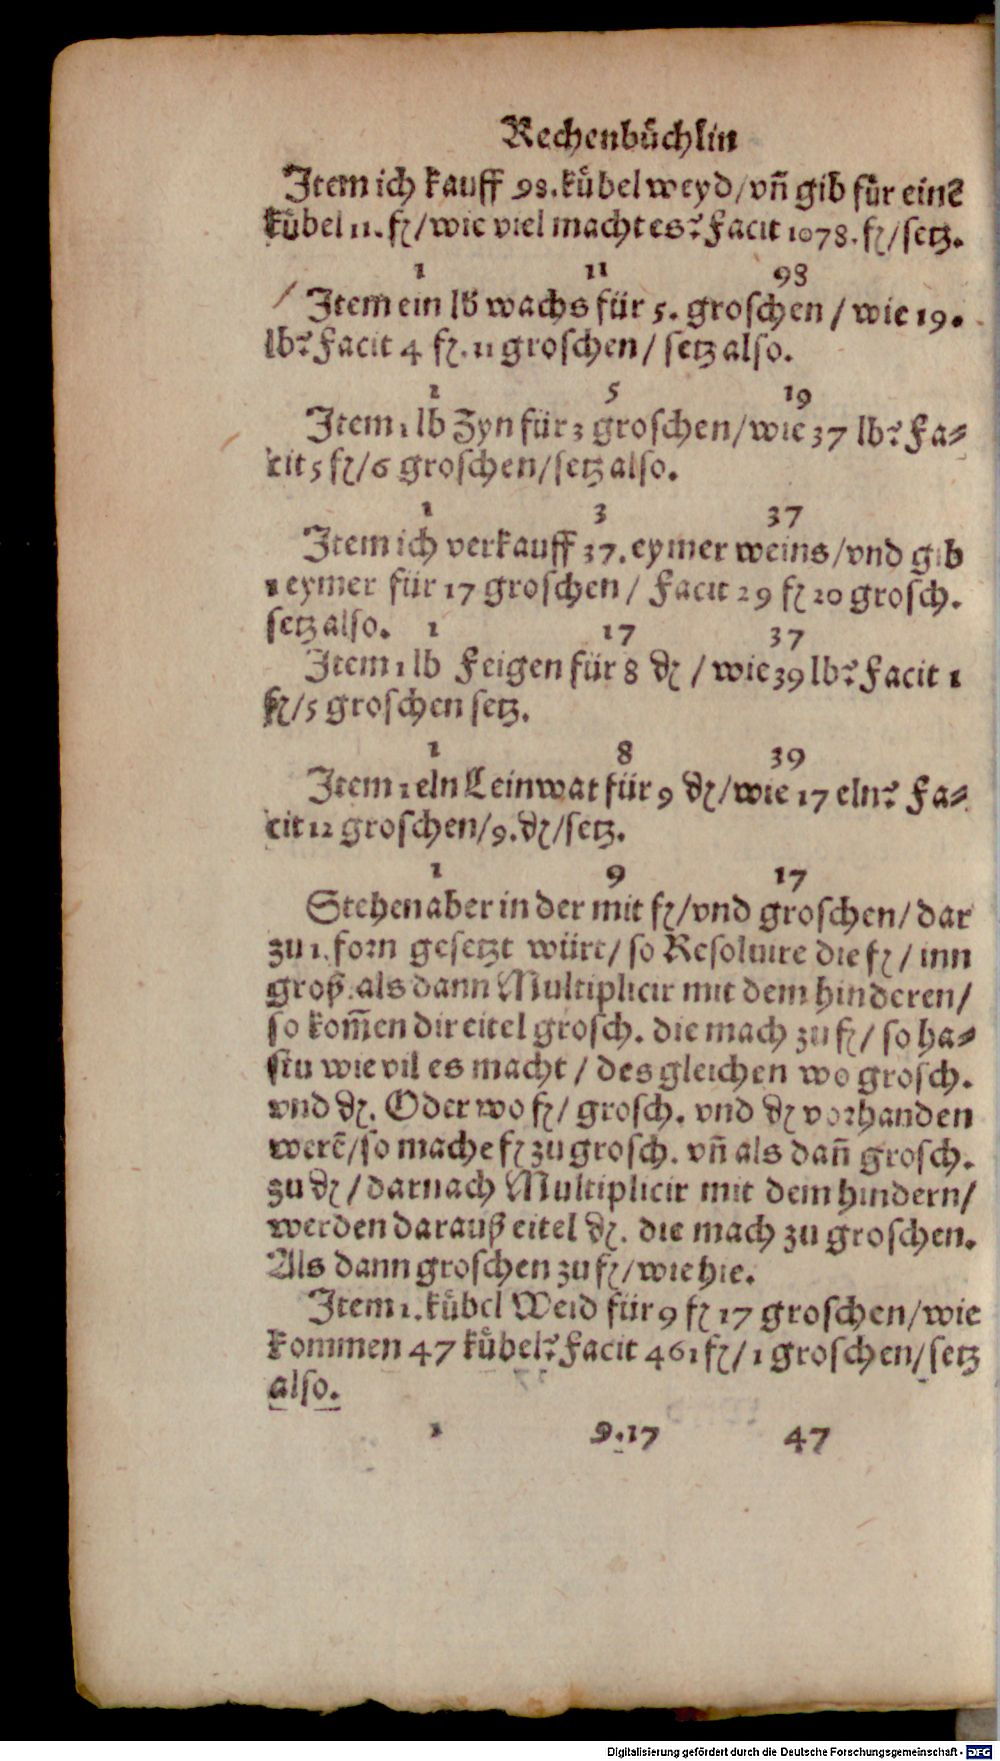 Rechenbuͤchlin
Item ich kauff 98. kuͤbel weyd/vñ gib fuͤr einē
kuͤbel 11. fl/wie viel macht es? Facit 1078. fl/setz.
1 11 98
Item ein lb wachs für 5. groschen / wie 19.
lb? Facit 4 fl. 11 groschen/ setz also.
1 5 19
Item 1 lb Zyn für 3 groschen/wie 37 lb? Fa⸗
cit 5 fl/6 groschen/setz also.
1 3 37
Item ich verkauff 37. eymer weins/vnd gib
1 eymer für 17 groschen/ Facit 29 fl 20 grosch.
setz also. 1 17 37
Item 1 lb Feigen für 8 ₰ / wie 39 lb? Facit 1
fl/5 groschen setz.
1 8 39
Item 1 eln Leinwat für 9 ₰/wie 17 eln? Fa⸗
cit 12 groschen/9. ₰/setz.
1 9 17
Stehen aber in der mit fl/vnd groschen/ dar
zu 1. forn gesetzt würt/ so Resoluire die fl / inn
groß. als dann Multiplicir mit dem hinderen/
so kom̃en dir eitel grosch. die mach zu fl/ so ha⸗
stu wie vil es macht / des gleichen wo grosch.
vnd ₰. Oder wo fl/ grosch. vnd ₰ vorhanden
werẽ/so mache fl zu grosch. vñ als dañ grosch.
zu ₰ / darnach Multiplicir mit dem hindern/
werden darauß eitel ₰. die mach zu groschen.
Als dann groschen zu fl/wie hie.
Item 1. kuͤbel Weid für 9 fl 17 groschen/wie
kommen 47 kuͤbel? Facit 461 fl/1 groschen/setz
also.
1 9.17 47
Digitalisierung gefördert durch die Deutsche Forschungsgemeinschaft - DFG